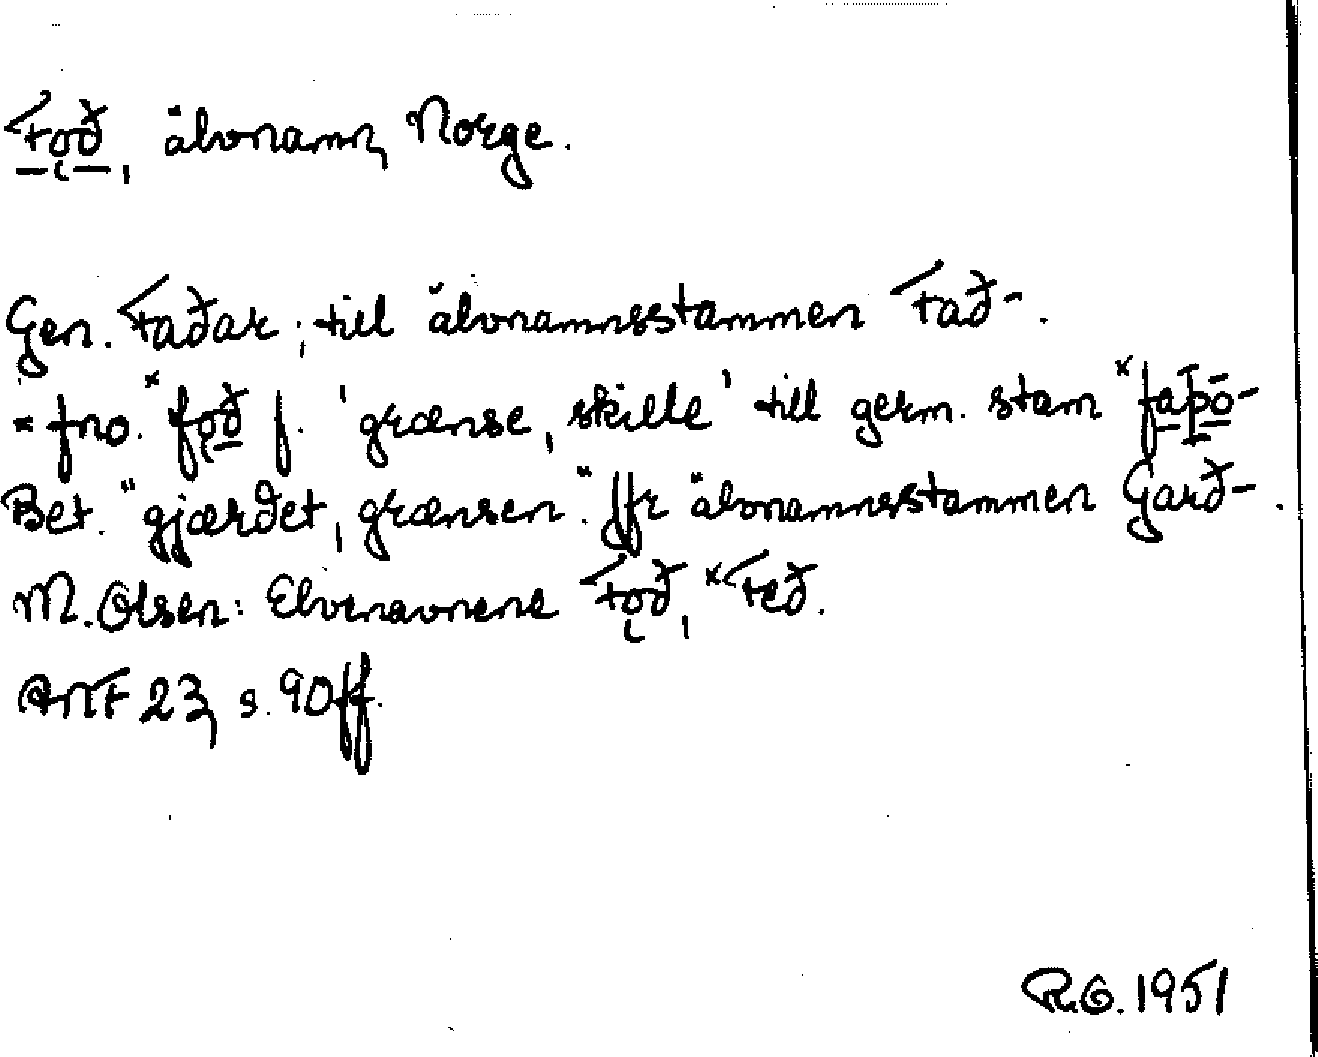 Fǫð, älvnamn, Norge.
Gen. Faðar; till älvnamnsstammen Fað-.
= fno. *fǫð f. 'grænse, skille' till germ. stam *faþō-
Bet. "gjærdet, grænsen". Jfr älvnamnsstammen Garð-.
M. Olsen: Elvenavnene Fǫð, *Feð.
ANF 23, s. 90 ff.
R.O. 1951